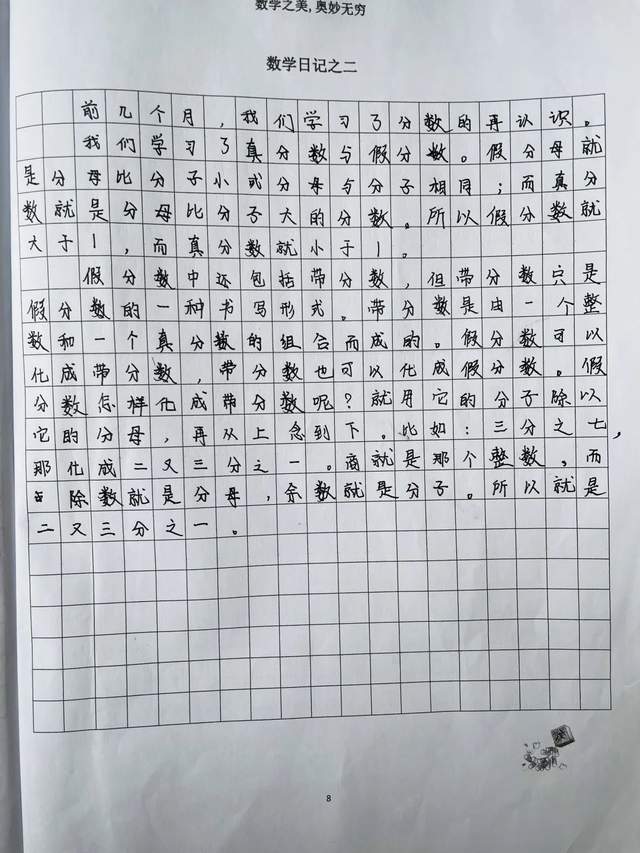 数学之美,奥妙无穷
数学日记之二
前几个月，我们学习了分数的再认识。
我们学习了真分数与假分数。假分母就
是分母比分子小或分母与分子相同；而真分
数就是分母比分子大的分数。所以假分数就
大于1，而真分数就小于1。
假分数中还包括带分数，但带分数只是
假分数的一种书写形式。带分数是由一个整
数和一个真分数的组合而成的。假分数可以
化成带分数，带分数也可以化成假分数。假
分数怎样化成带分数呢？就用它的分子除以
它的分母，再从上念到下。比如：三分之七，
那化成二又三分之一。商就是那个整数，而
除数就是分母，余数就是分子。所以就是
二又三分之一。
8